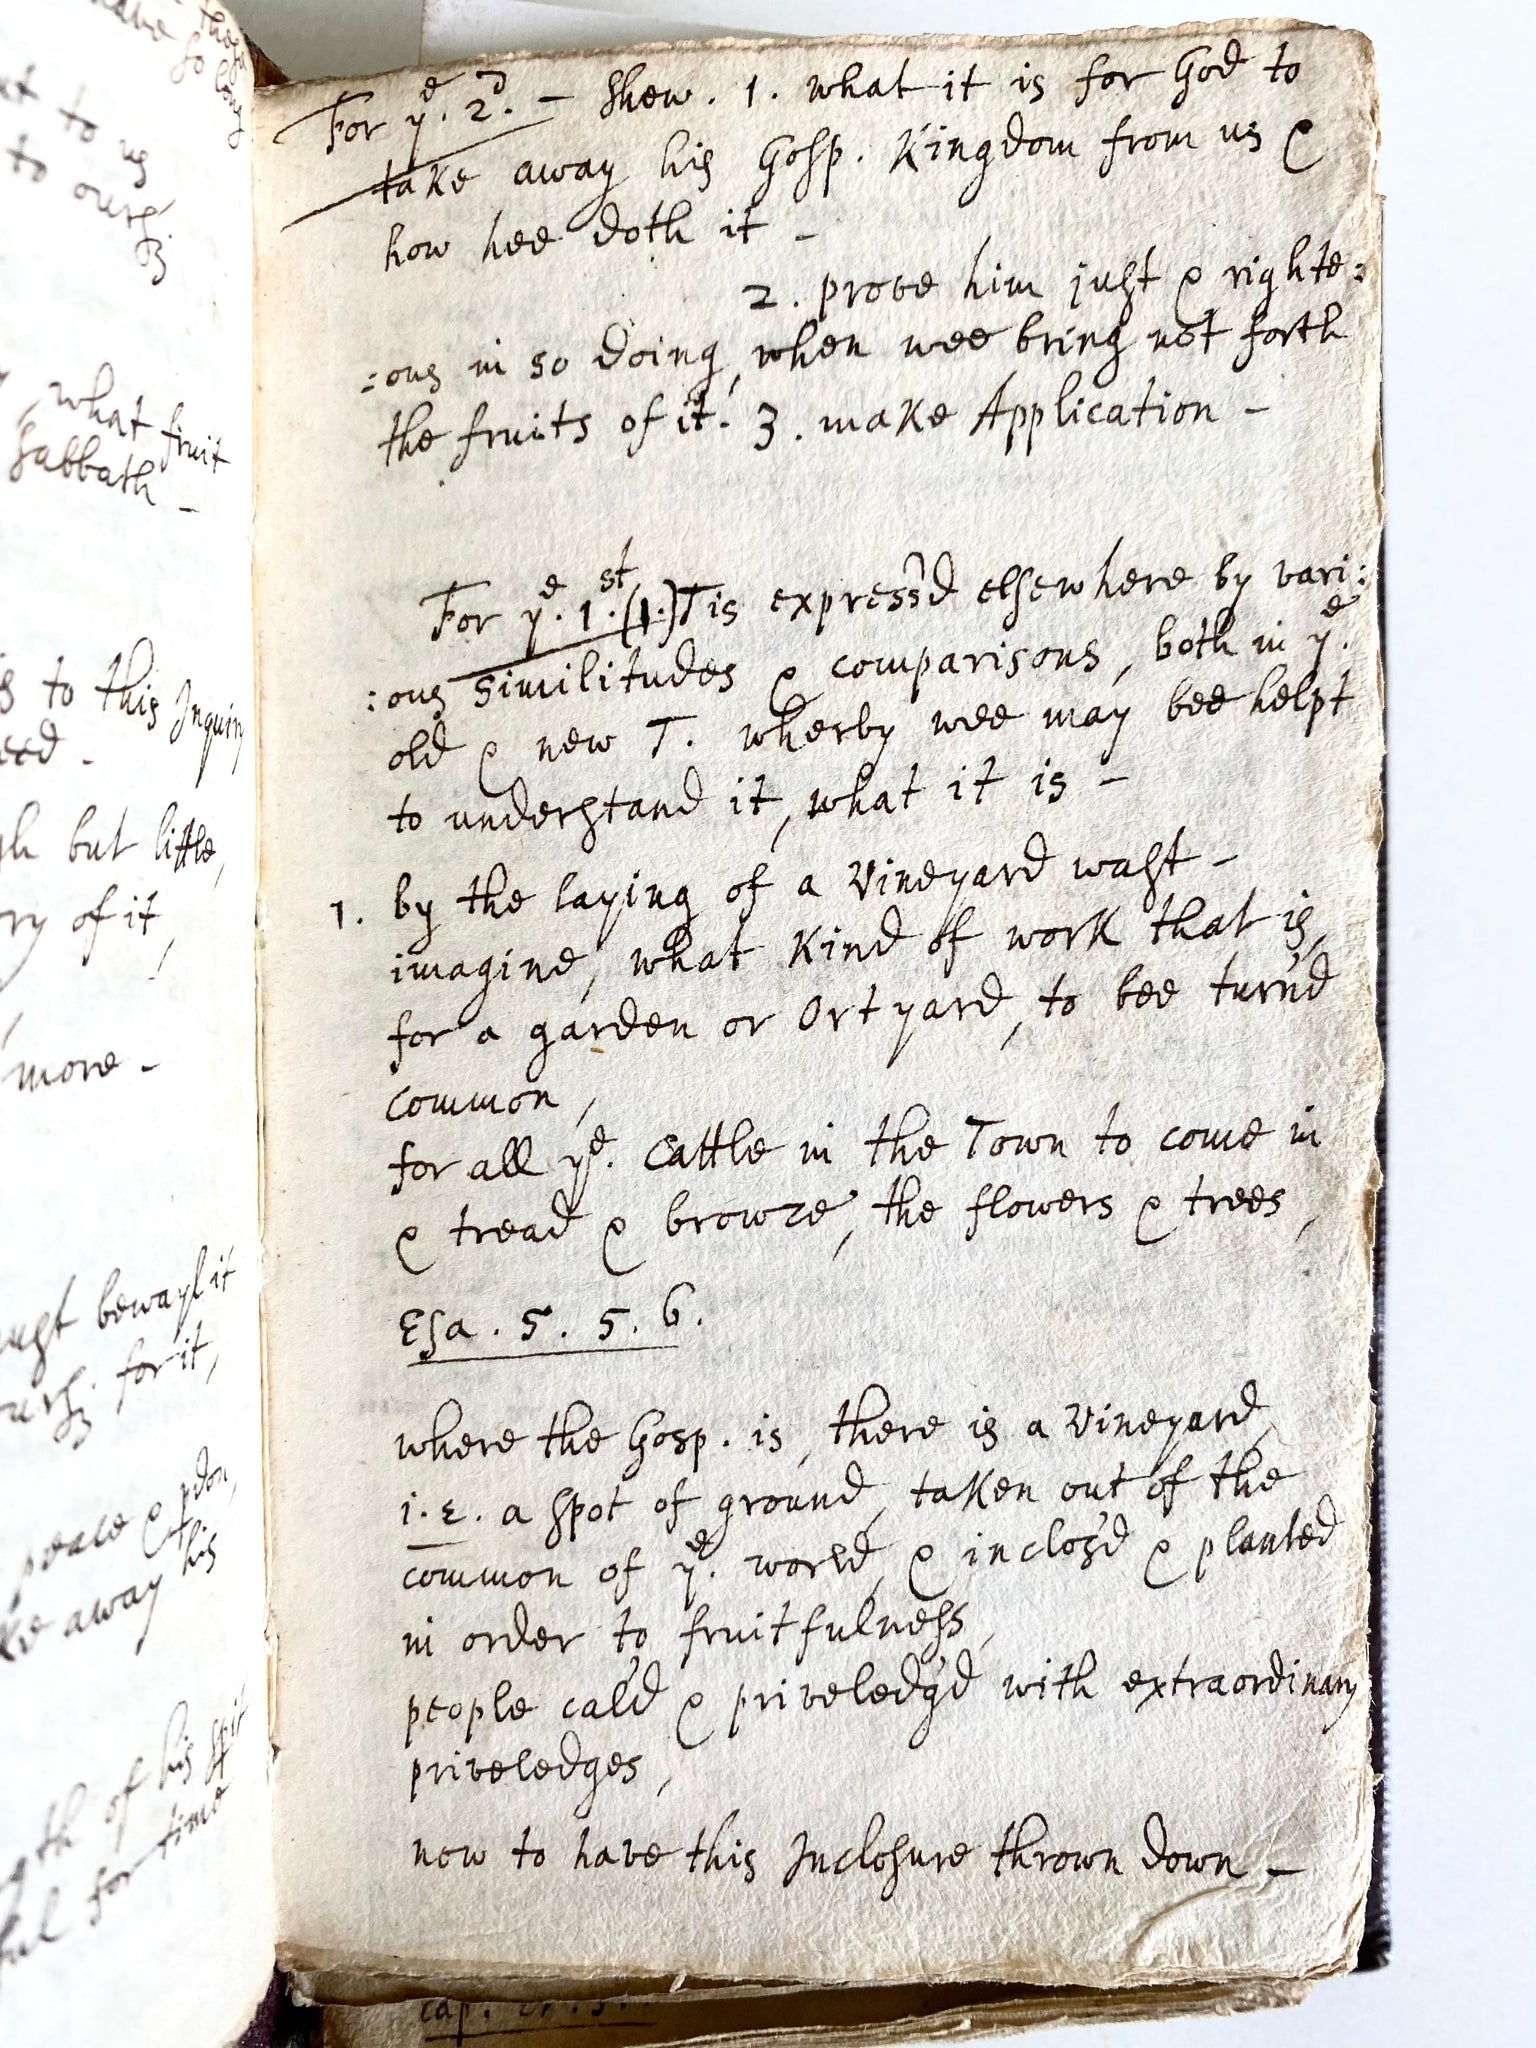 these
have so long
nt to us
to oursz.
what fruit
Sabbath -
s to this Inquiry
eed -
gh but little,
ry of it,
more -
ught bewayl it
oursz. for it,
peace & pdon,
ke away his
ngth of his Spit
ful for time
For ye. 2d. - Shew. 1. what it is for God to
take away his Gosp. Kingdom from us &
how hee doth it -
2. prove him just & righte:
:ous in so doing, when wee bring not forth
the fruits of it. 3. make Application -
For ye. 1.st (1.) Tis express'd elsewhere by vari:
:ous similitudes & comparisons, both in ye.
old & new T. wherby wee may bee helpt
to understand it, what it is -
1. by the laying of a Vineyard wast -
imagine, what kind of work that is,
for a garden or Ortyard, to bee turn'd
common,
for all ye. Cattle in the Town to come in
& tread & browze, the flowers & trees,
Esa. 5. 5. 6.
where the Gosp. is, there is a Vineyard,
i.e. a spot of ground, taken out of the
common of ye. world, & inclos'd & planted
in order to fruitfulness,
people cal'd & priveledg'd with extraordinary
priveledges,
now to have this Inclosure thrown down -